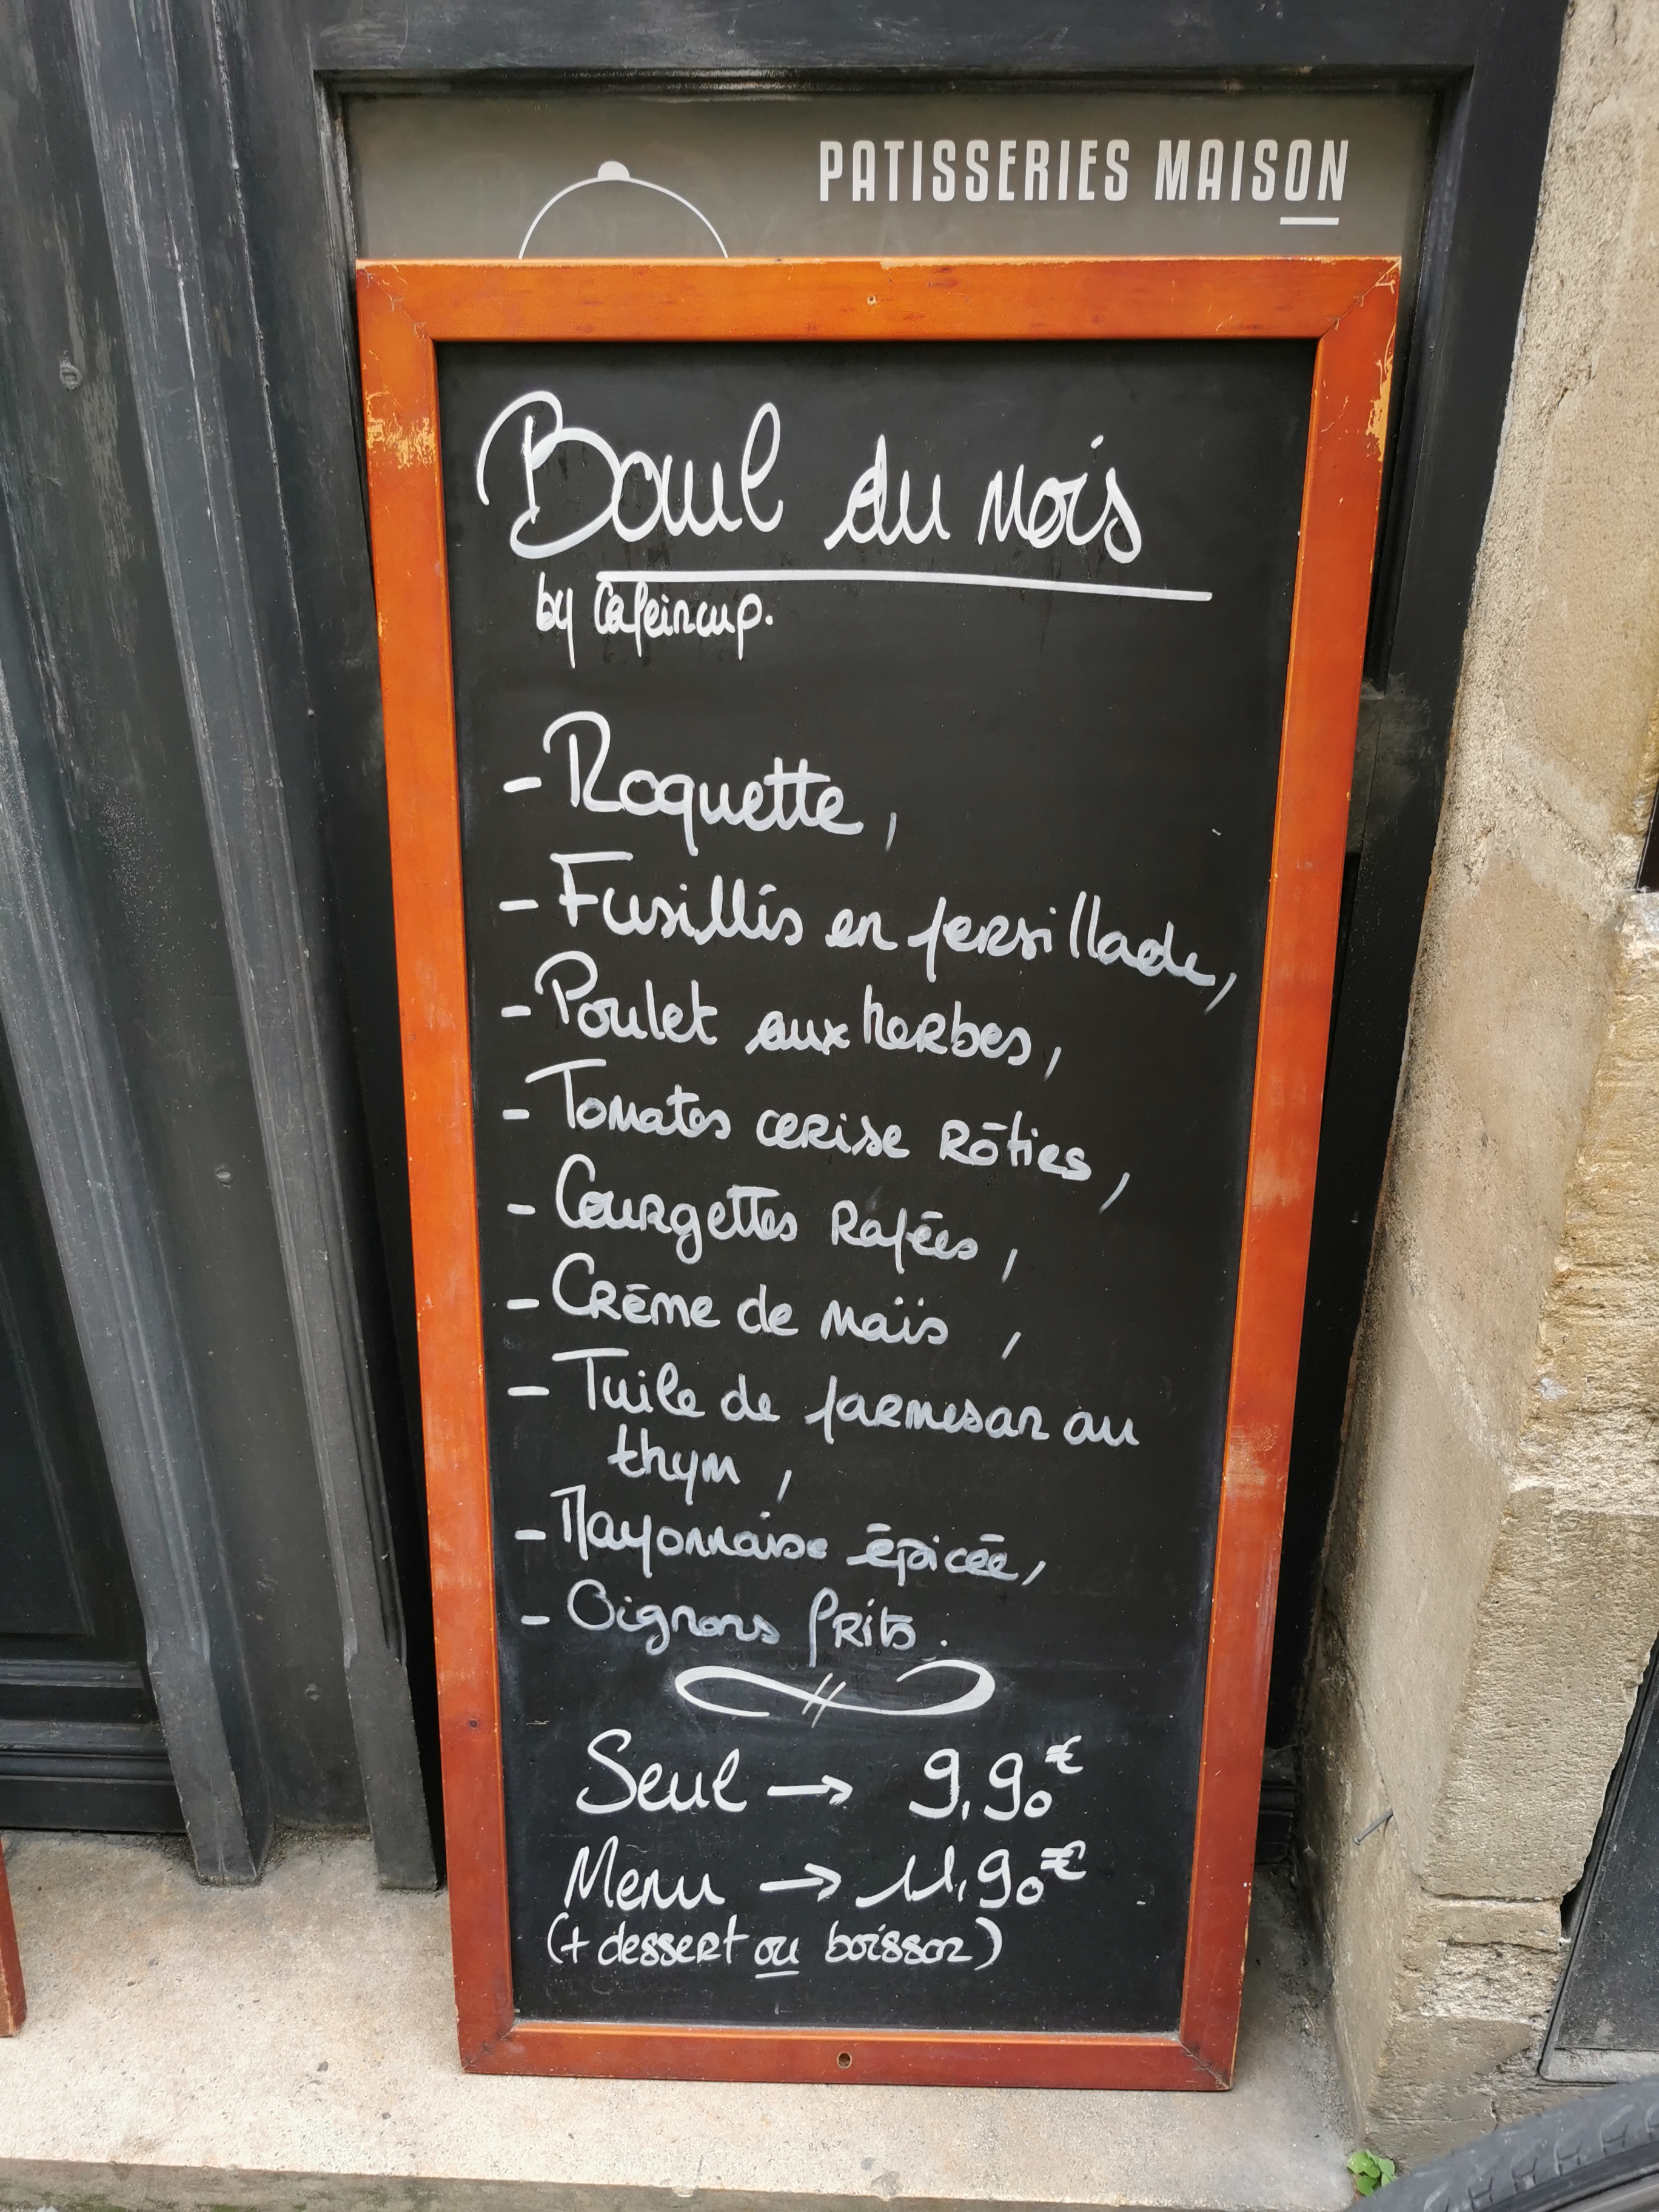 PATISSERIES MAISON
Bowl du mois
by Cafeincup.
- Roquette,
- Fusillis en persillade,
- Poulet aux herbes,
- Tomates cerise Rôties,
- Courgettes Rapées,
- Crème de maïs,
- Tuile de parmesan au
thym,
- Mayonnaise épicée,
- Oignons frits.
Seul → 9,90€
Menu → 11,90€
(+ dessert ou boisson)